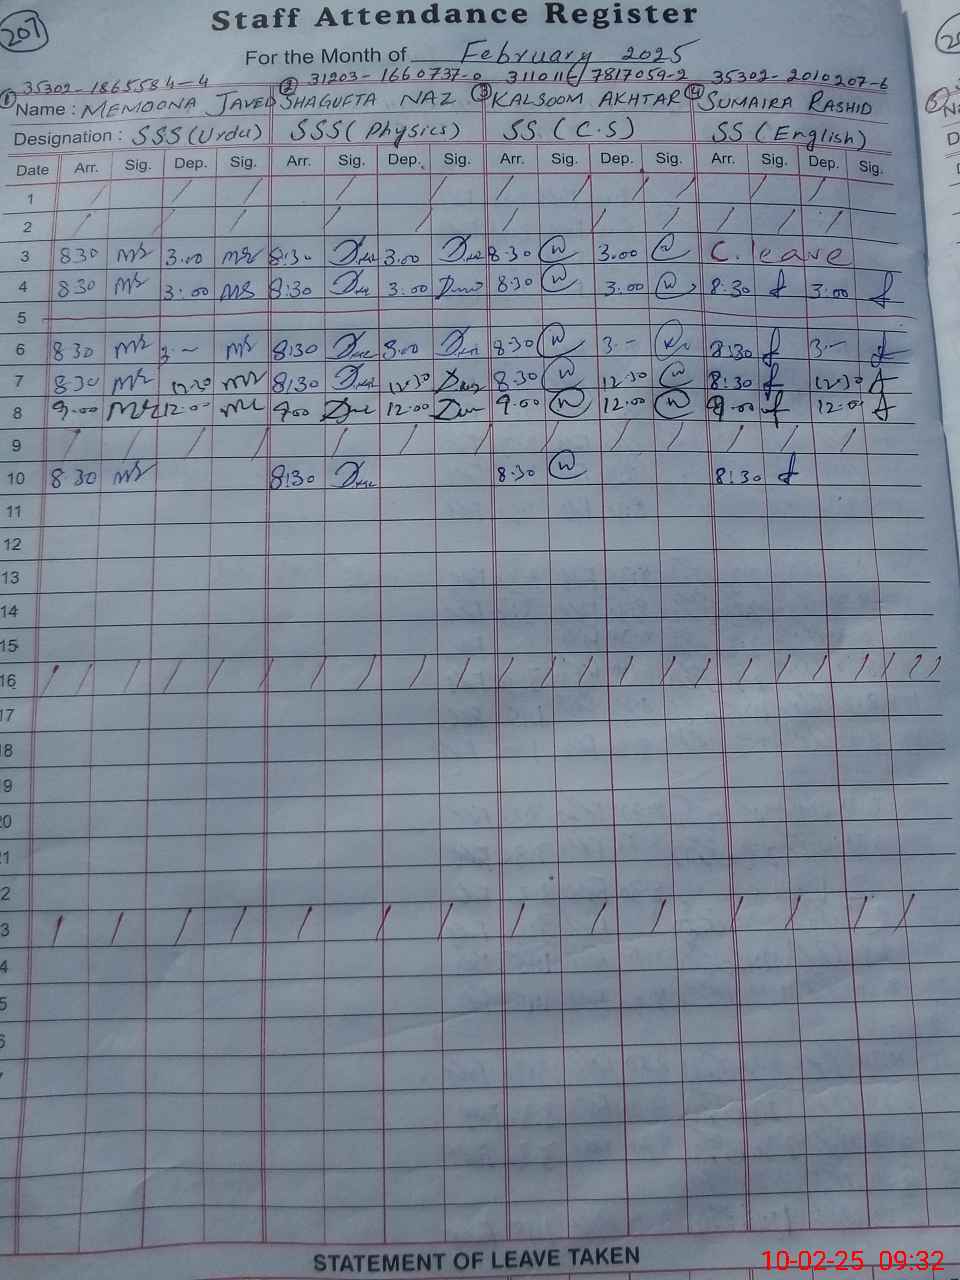 207
Staff Attendance Register
For the Month of February 2025
① 35302-1865584-4 ② 31203-1660737-0 31101 7817059-2 35302-2010207-6
Name : MEMOONA JAVED SHAGUFTA NAZ ③ KALSOOM AKHTAR ④ SUMAIRA RASHID
Designation : SSS (Urdu) SSS (Physics) SS (C.S) SS (English)
Date Arr. Sig. Dep. Sig. Arr. Sig. Dep. Sig. Arr. Sig. Dep. Sig. Arr. Sig. Dep. Sig.
1 / / / / / / / / /
2 / / / / / / / / / /
3 830 3.00 8:30 3.00 8.30 3.00 C. leave
4 830 3:00 8:30 3.00 8:30 3.00 8:30 3:00
5
6 830 3.— 8:30 3.00 8.30 3.— 8:30 3.—
7 8.30 12.30 8:30 12:30 8.30 12.30 8:30 12.30
8 9.00 12.00 9.00 12.00 9.00 12.00 9.00 12.00
9 / / / / / / / / / / /
10 8.30 8:30 8.30 8:30
11
12
13
14
15
16 / / / / / / / / / / / / / / / / / / / / /
17
18
19
20
21
2
3 / / / / / / / / / / / / /
4
5
STATEMENT OF LEAVE TAKEN
10-02-25 09:32